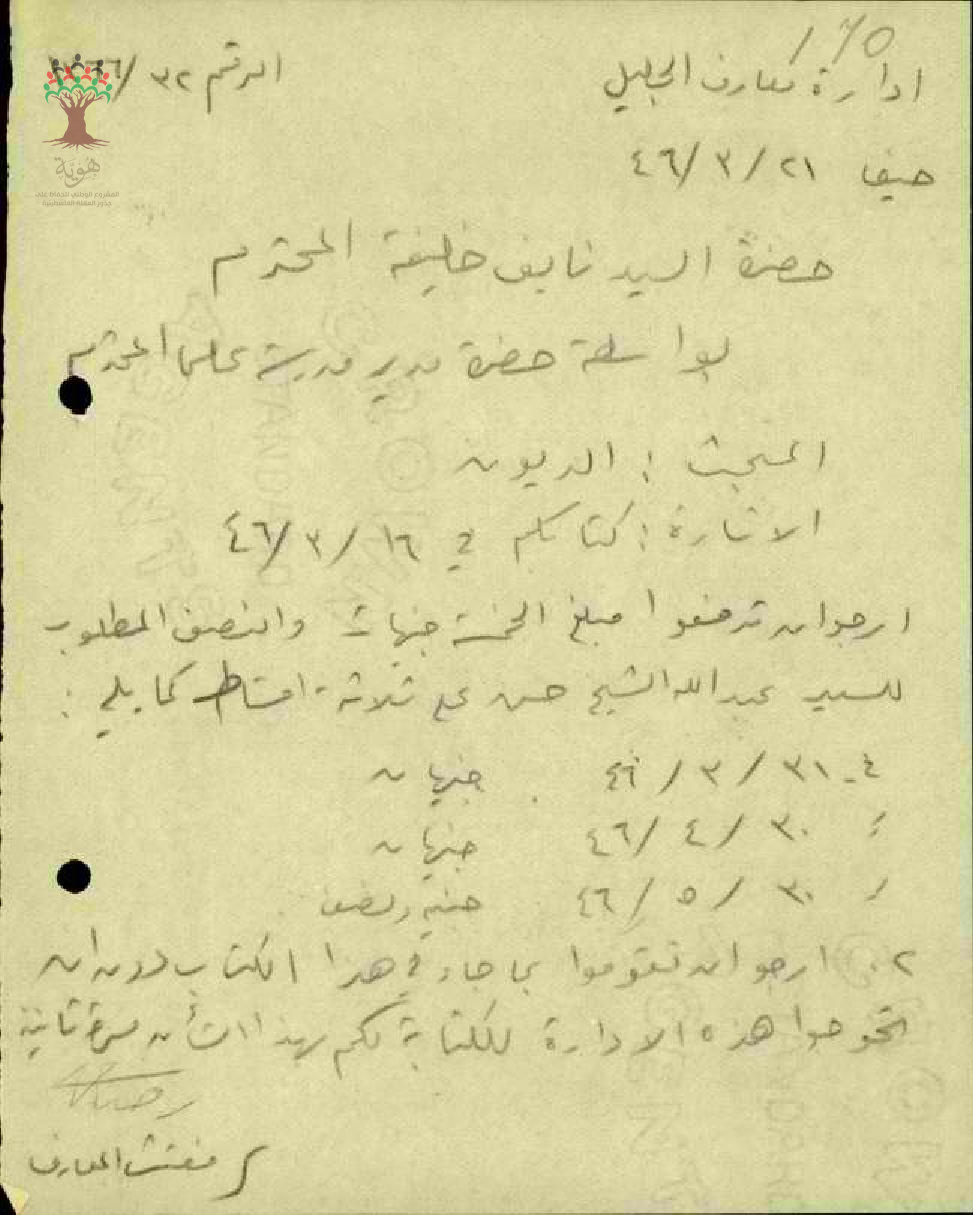 ١٦٥
ادارة معارف الجليل
الرقم ٣٢/
حيفا ٢١/٣/٤٦
هوية
المشروع الوطني للحفاظ على
جذور العائلة الفلسطينية
حضرة السيد نايف خليفة المحترم
بواسطة حضرة مدير مدرسة المحترم
المبحث : الديون
الاشارة : كتابكم في ١٦/٣/٤٦
ارجو ان تدفعوا مبلغ الخمسة جنيهات والنصف المطلوب
للسيد عبدالله الشيخ حسن على ثلاثة اقساط كما يلي :
٣١/٣/٤٦ جنيهان
٣٠/٤/٤٦ جنيهان
٣٠/٥/٤٦ جنيه ونصف
٢. ارجو ان تقوموا بما جاء في هذا الكتاب دون ان
تحوجوا هذه الادارة للكتابة لكم بهذا الشأن مرة ثانية
مفتش المعارف